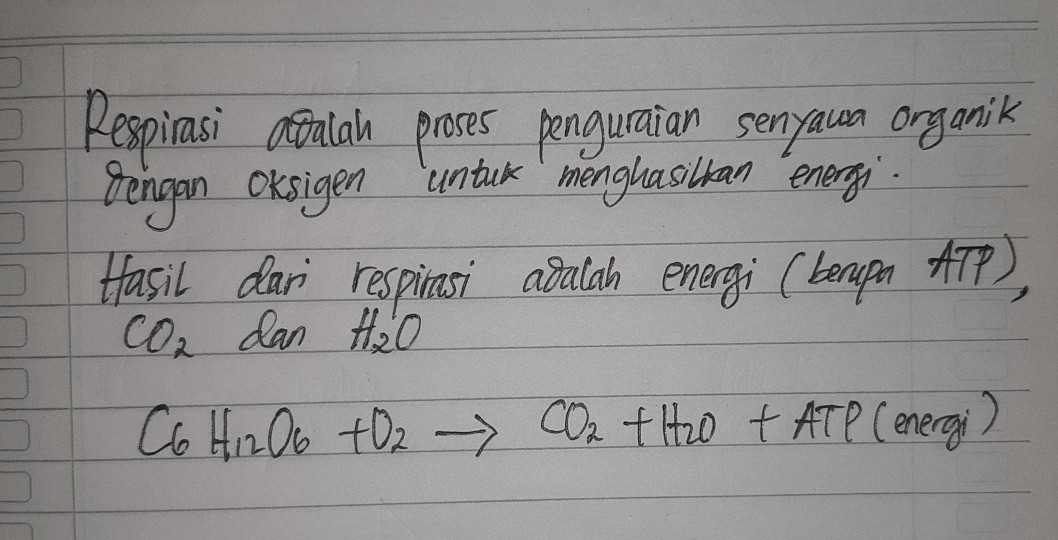 Respirasi adalah proses penguraian senyawa organik
dengan oksigen untuk menghasilkan energi.
Hasil dari respirasi adalah energi (berupa ATP),
CO₂ dan H₂O
C₆H₁₂O₆ + O₂ → CO₂ + H₂O + ATP (energi)